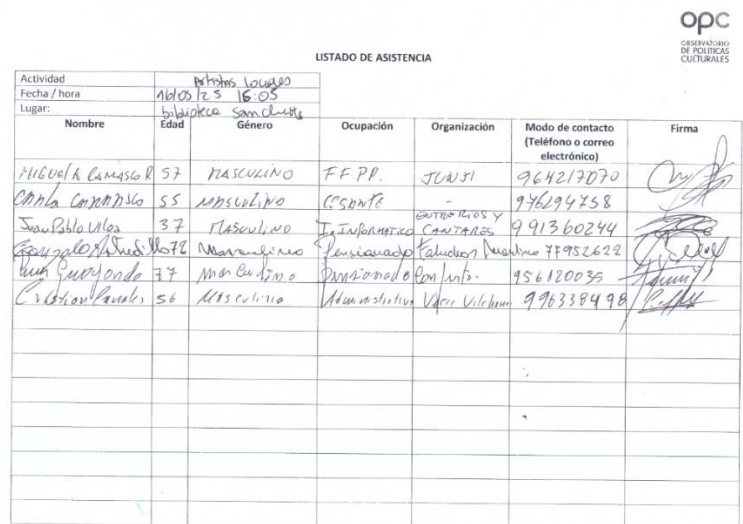 opc
OBSERVATORIO
DE POLITICAS
CULTURALES
LISTADO DE ASISTENCIA
Actividad Artistas Locales
Fecha / hora 16/05/25 16:05
Lugar: biblioteca
Nombre Edad Género Ocupación Organización Modo de contacto (Teléfono o correo electrónico) Firma
MIGUEL A CAMASCO R 57 MASCULINO FF.PP. JUNJI 964217070
55 MASCULINO CESANTE - 976294758
Juan Pablo Ulloa 37 MASCULINO Ig INFORMATICO ENTRE RIOS Y CANTARES 991360244
Gonzalo Astudillo 72 Masculino Pensionado 77952622
77 Masculino Pensionado 956120035
Cristian 56 Masculino Administrativo 996338498